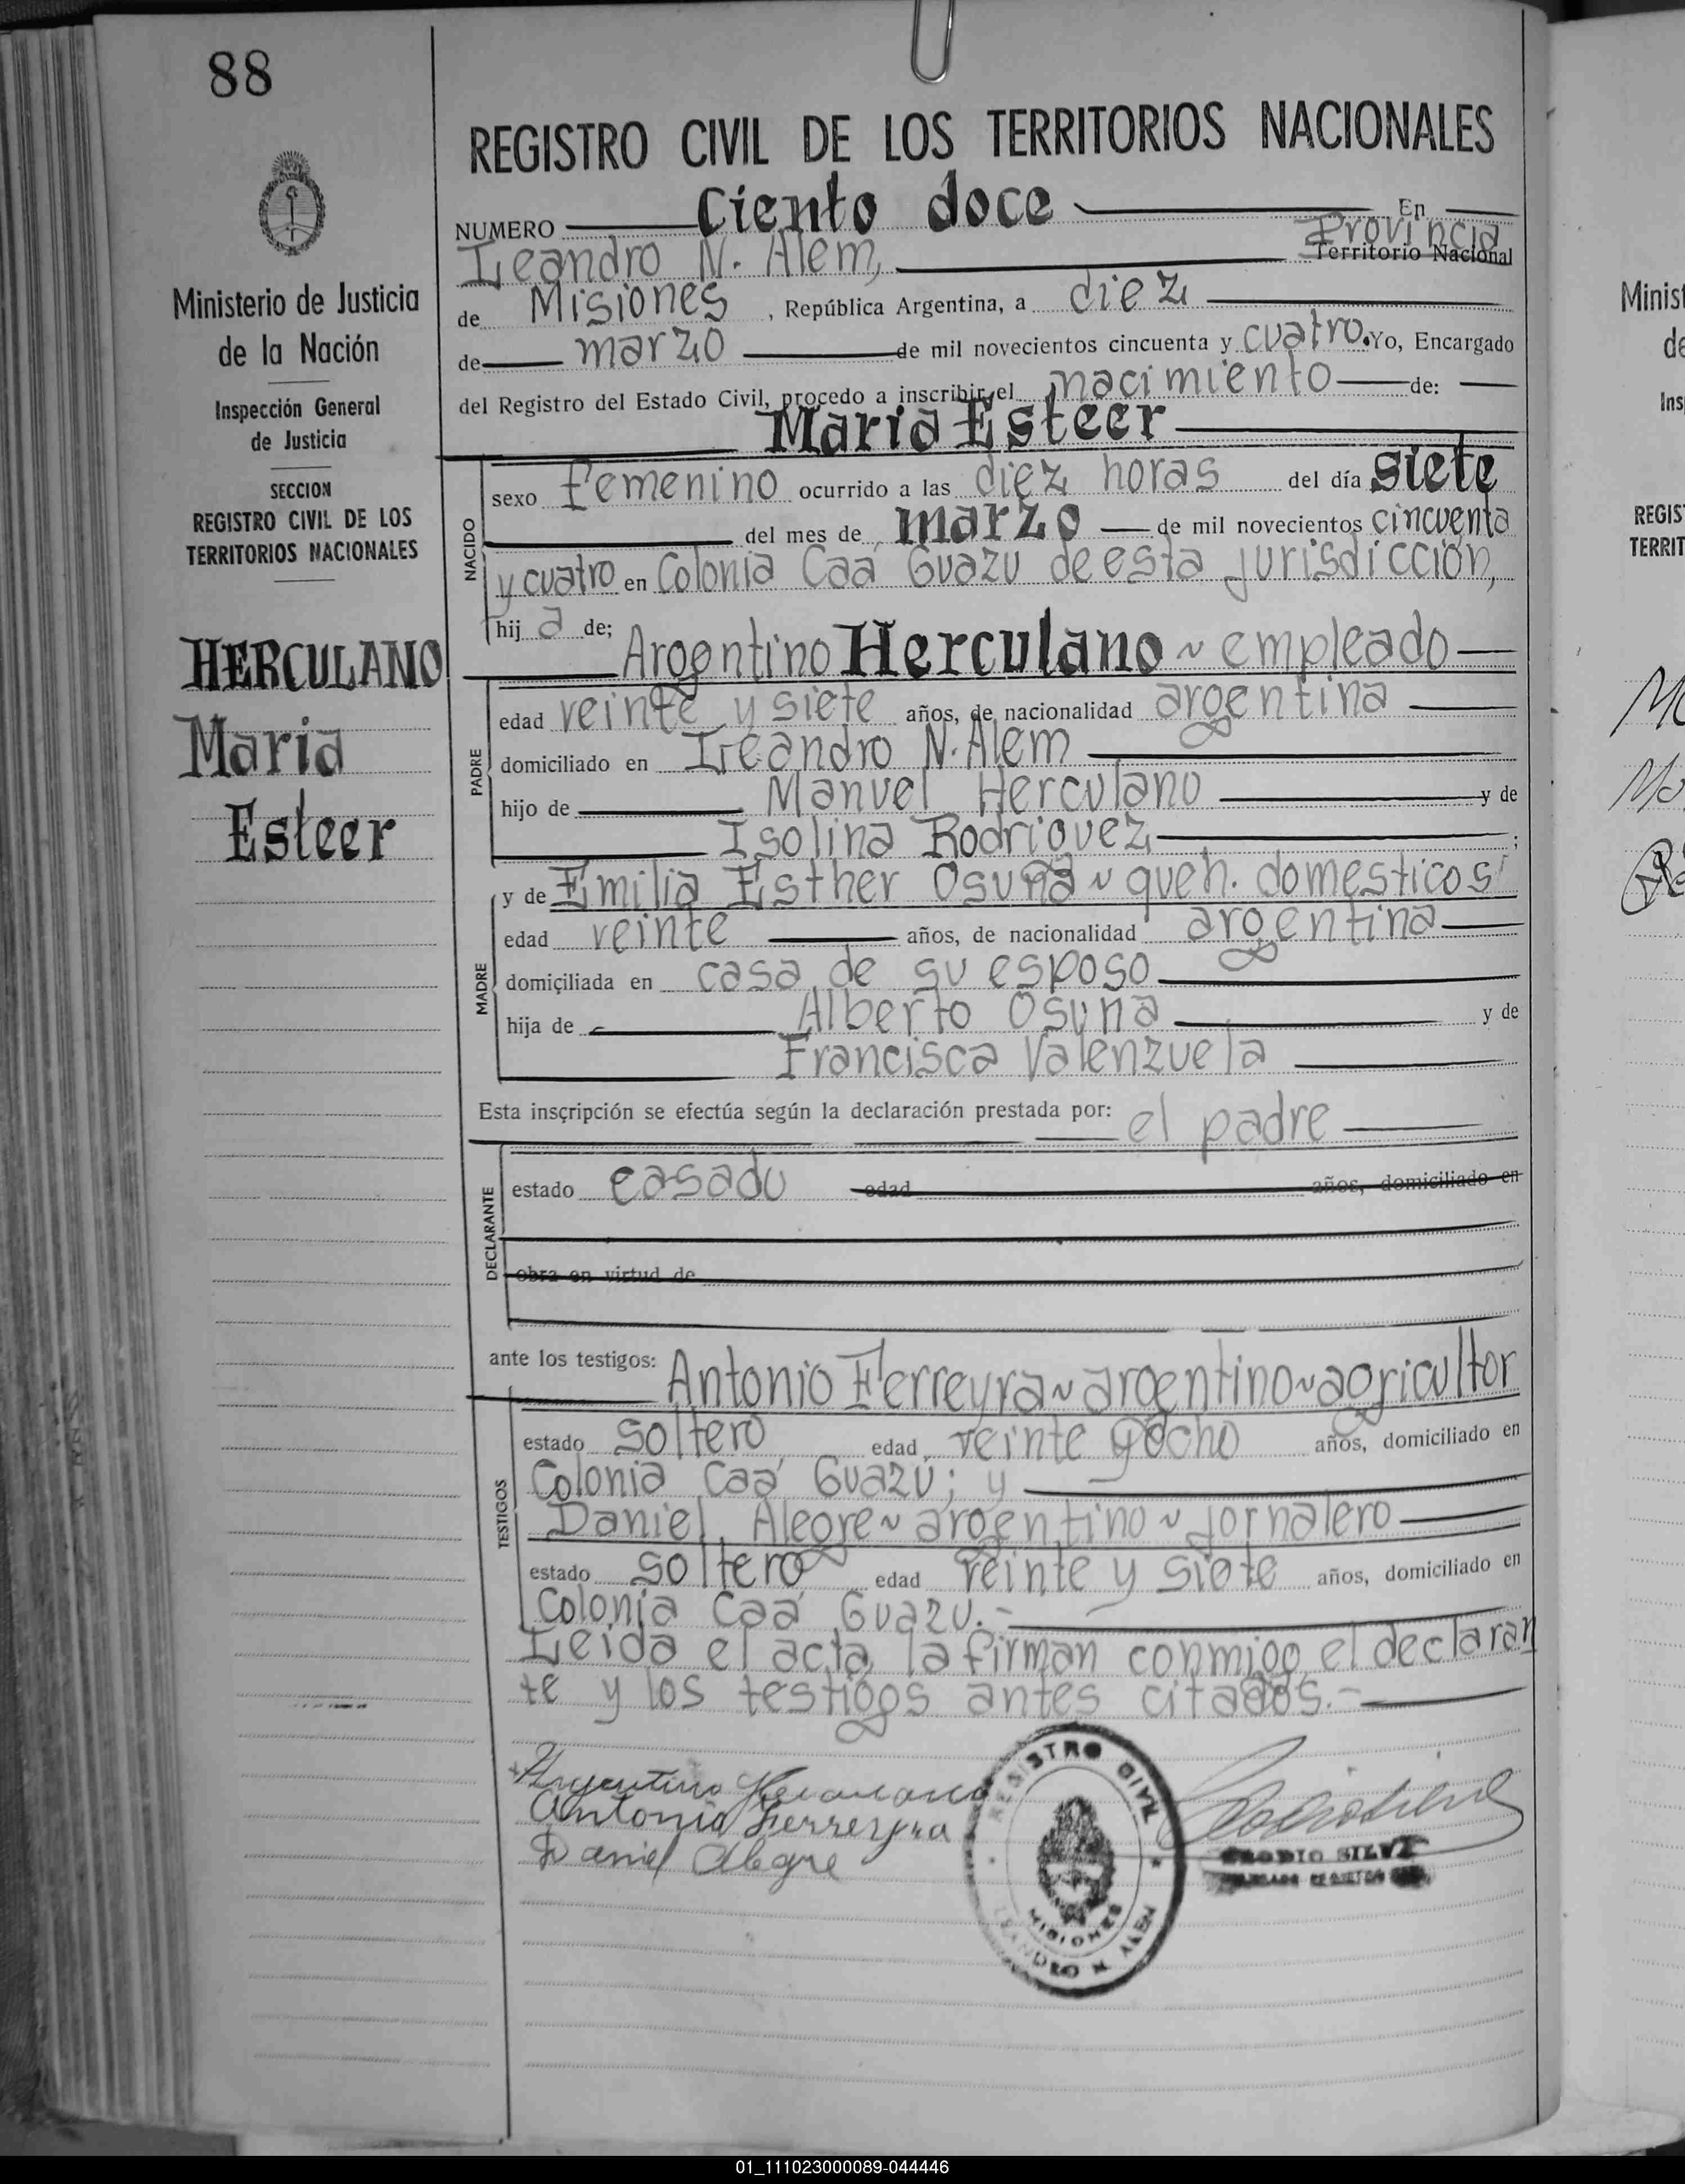 88
REGISTRO CIVIL DE LOS TERRITORIOS NACIONALES
NUMERO Ciento doce En
Provincia
Leandro N. Alem, Territorio Nacional
de Misiones, República Argentina, a diez
de marzo de mil novecientos cincuenta y cuatro. Yo, Encargado
del Registro del Estado Civil, procedo a inscribir el nacimiento de:
Maria Esteer
Ministerio de Justicia
de la Nación
Inspección General
de Justicia
SECCION
REGISTRO CIVIL DE LOS
TERRITORIOS NACIONALES
HERCULANO
Maria
Esteer
NACIDO
sexo femenino ocurrido a las diez horas del día siete
del mes de marzo de mil novecientos cincuenta
y cuatro en Colonia Caá Guazu de esta jurisdicción,
hij a de;
Argentino Herculano ~ empleado
PADRE
edad veinte y siete años, de nacionalidad argentina
domiciliado en Leandro N. Alem
hijo de Manuel Herculano y de
Isolina Rodriguez ;
MADRE
y de Emilia Esther Osuna ~ queh. domesticos
edad veinte años, de nacionalidad argentina
domiciliada en casa de su esposo
hija de Alberto Osuna y de
Francisca Valenzuela
Esta inscripción se efectúa según la declaración prestada por: el padre
DECLARANTE
estado casado edad años, domiciliado en
obra en virtud de
ante los testigos: Antonio Ferreyra ~ argentino ~ agricultor
TESTIGOS
estado soltero edad veinte y ocho años, domiciliado en
Colonia Caá Guazú; y
Daniel Alegre ~ argentino ~ jornalero
estado soltero edad veinte y siete años, domiciliado en
Colonia Caá Guazu.-
Leida el acta, la firman conmigo, el declaran
te y los testigos antes citados.-
Argentino Herculano
Antonio Ferreyra
Daniel Alegre
REGISTRO CIVIL
MISIONES
LEANDRO N. ALEM
SILVA
01_111023000089-044446